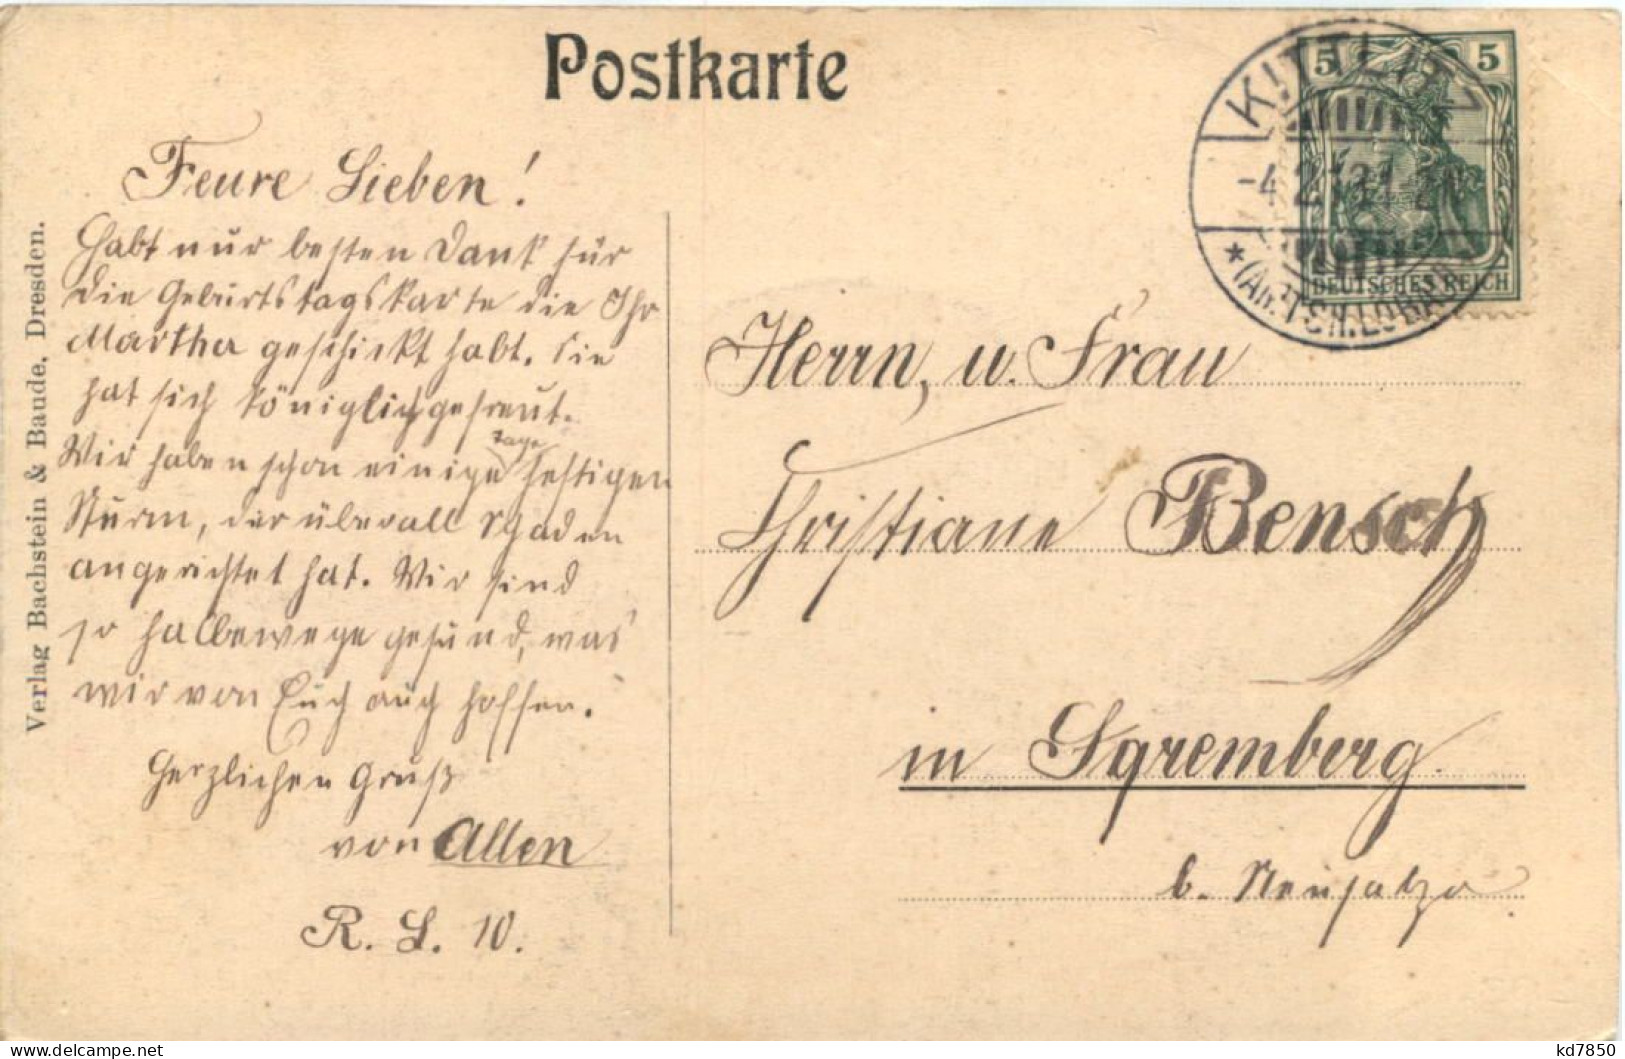 Postkarte
Teure Lieben!
Habt nur besten Dank für
die Geburtstagskarte die Ihr
Martha geschickt habt. Sie
hat sich königlich gefreut.
Wir haben schon einige Tage heftigen
Sturm, der überall Schaden
angerichtet hat. Wir sind
so halbewege gesund, was
wir von Euch auch hoffen.
Herzlichen Gruß
von Allen
R. L. 10.
Verlag Bachstein & Baude, Dresden.
5 5
DEUTSCHES REICH
KITTLITZ
-4.2.
* (AMTSH.LÖBAU)
Herrn, u. Frau
Christiane Bensch
in Spremberg.
b. Neusalza
kd7850